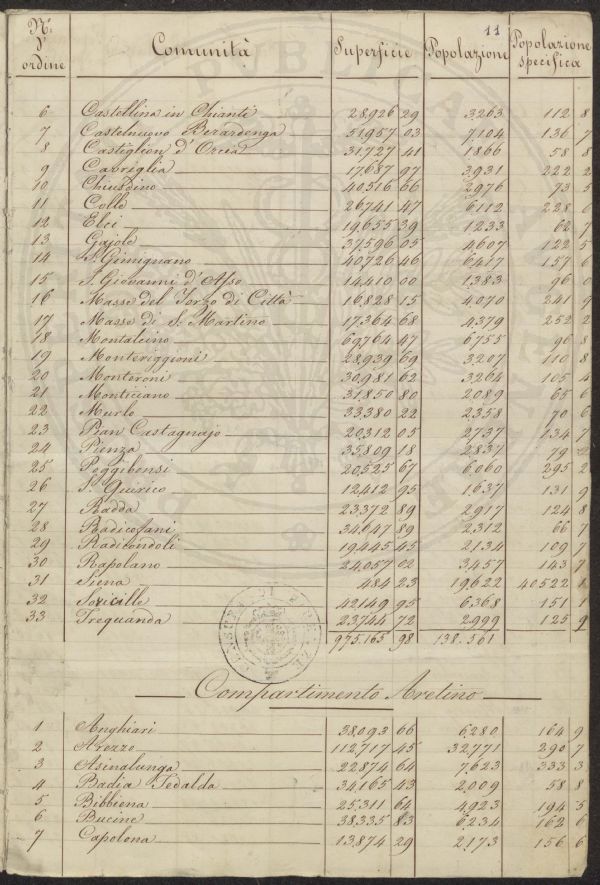 11
N.º d'ordine Comunità Superficie Popolazione Popolazione specifica
6 Castellina in Chianti 28,926 29 3,263 112 8
7 Castelnuovo Berardenga 51,957 03 7,104 136 7
8 Castiglion d'Orcia 31,727 41 1,866 58 8
9 Cavriglia 17,687 97 3,931 222 2
10 Chiusdino 40,516 66 2,976 73 5
11 Colle 26,741 47 6,112 228 6
12 Elci 19,655 39 1,233 62 7
13 Gajole 37,596 05 4,607 122 5
14 S. Gimignano 40,726 46 6,417 157 6
15 S. Giovanni d'Asso 14,410 00 1,383 96 0
16 Masse del Terzo di Città 16,828 15 4,070 241 9
17 Masse di S. Martino 17,364 68 4,379 252 2
18 Montalcino 69,764 47 6,755 96 8
19 Monteriggioni 28,939 69 3,207 110 8
20 Monteroni 30,981 62 3,264 105 4
21 Monticiano 31,850 80 2,089 65 6
22 Murlo 33,380 22 2,358 70 6
23 Pian Castagnajo 20,312 05 2,737 134 7
24 Pienza 35,809 18 2,837 79 2
25 Poggibonsi 20,525 67 6,060 295 2
26 S. Quirico 12,412 95 1,637 131 9
27 Radda 23,372 89 2,917 124 8
28 Radicofani 34,647 89 2,312 66 7
29 Radicondoli 19,445 45 2,134 109 7
30 Rapolano 24,057 02 3,457 143 7
31 Siena 484 23 19,622 40,522 1
32 Sovicille 42,149 95 6,368 151 1
33 Trequanda 23,744 72 2,999 125 9
975,165 98 138,561
Compartimento Aretino
1 Anghiari 38,093 66 6,280 164 9
2 Arezzo 112,717 45 32,771 290 7
3 Asinalunga 22,874 64 7,623 333 3
4 Badia Tedalda 34,165 43 2,009 58 8
5 Bibbiena 25,311 64 4,923 194 5
6 Bucine 38,335 83 6,234 162 6
7 Capolona 13,874 29 2,173 156 6